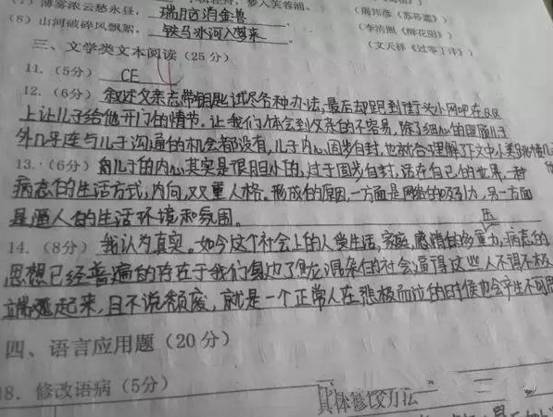 (7) 薄雾浓云愁永昼，瑞脑消金兽。(李清照《醉花阴》)
(8) 山河破碎风飘絮，铁马冰河入梦来。(文天祥《过零丁洋》)
三、文学类文本阅读（25分）
11.（5分） CE
12.（6分） 叙述父亲忘带钥匙试尽各种办法，最后却跑到街头小网吧在QQ
上让儿子给他开门的情节，让我们体会到父亲的不容易，除了细心的照顾儿子
外几乎连与儿子沟通的机会都没有，儿子内心固步自封，也就合理解了下文中小
13.（6分） 的儿子的内心其实是很胆小的，过于固步自封，活在自己的世界，一种
病态的生活方式，内向，双重人格。形成的原因，一方面是网络的吸引力，另一方面
是逼人的生活环境和氛围。
14.（8分） 我认为真实。如今这个社会上的人受生活，家庭，感情的多重压力，病态的
思想已经普遍的存在于我们身边了，混杂的社会逼得这些人不得不极
端起来，且不说颓废，就是一个正常人在的时候也会产生不同
四、语言应用题（20分）
18. 修改语病（5分） 具体修改方法